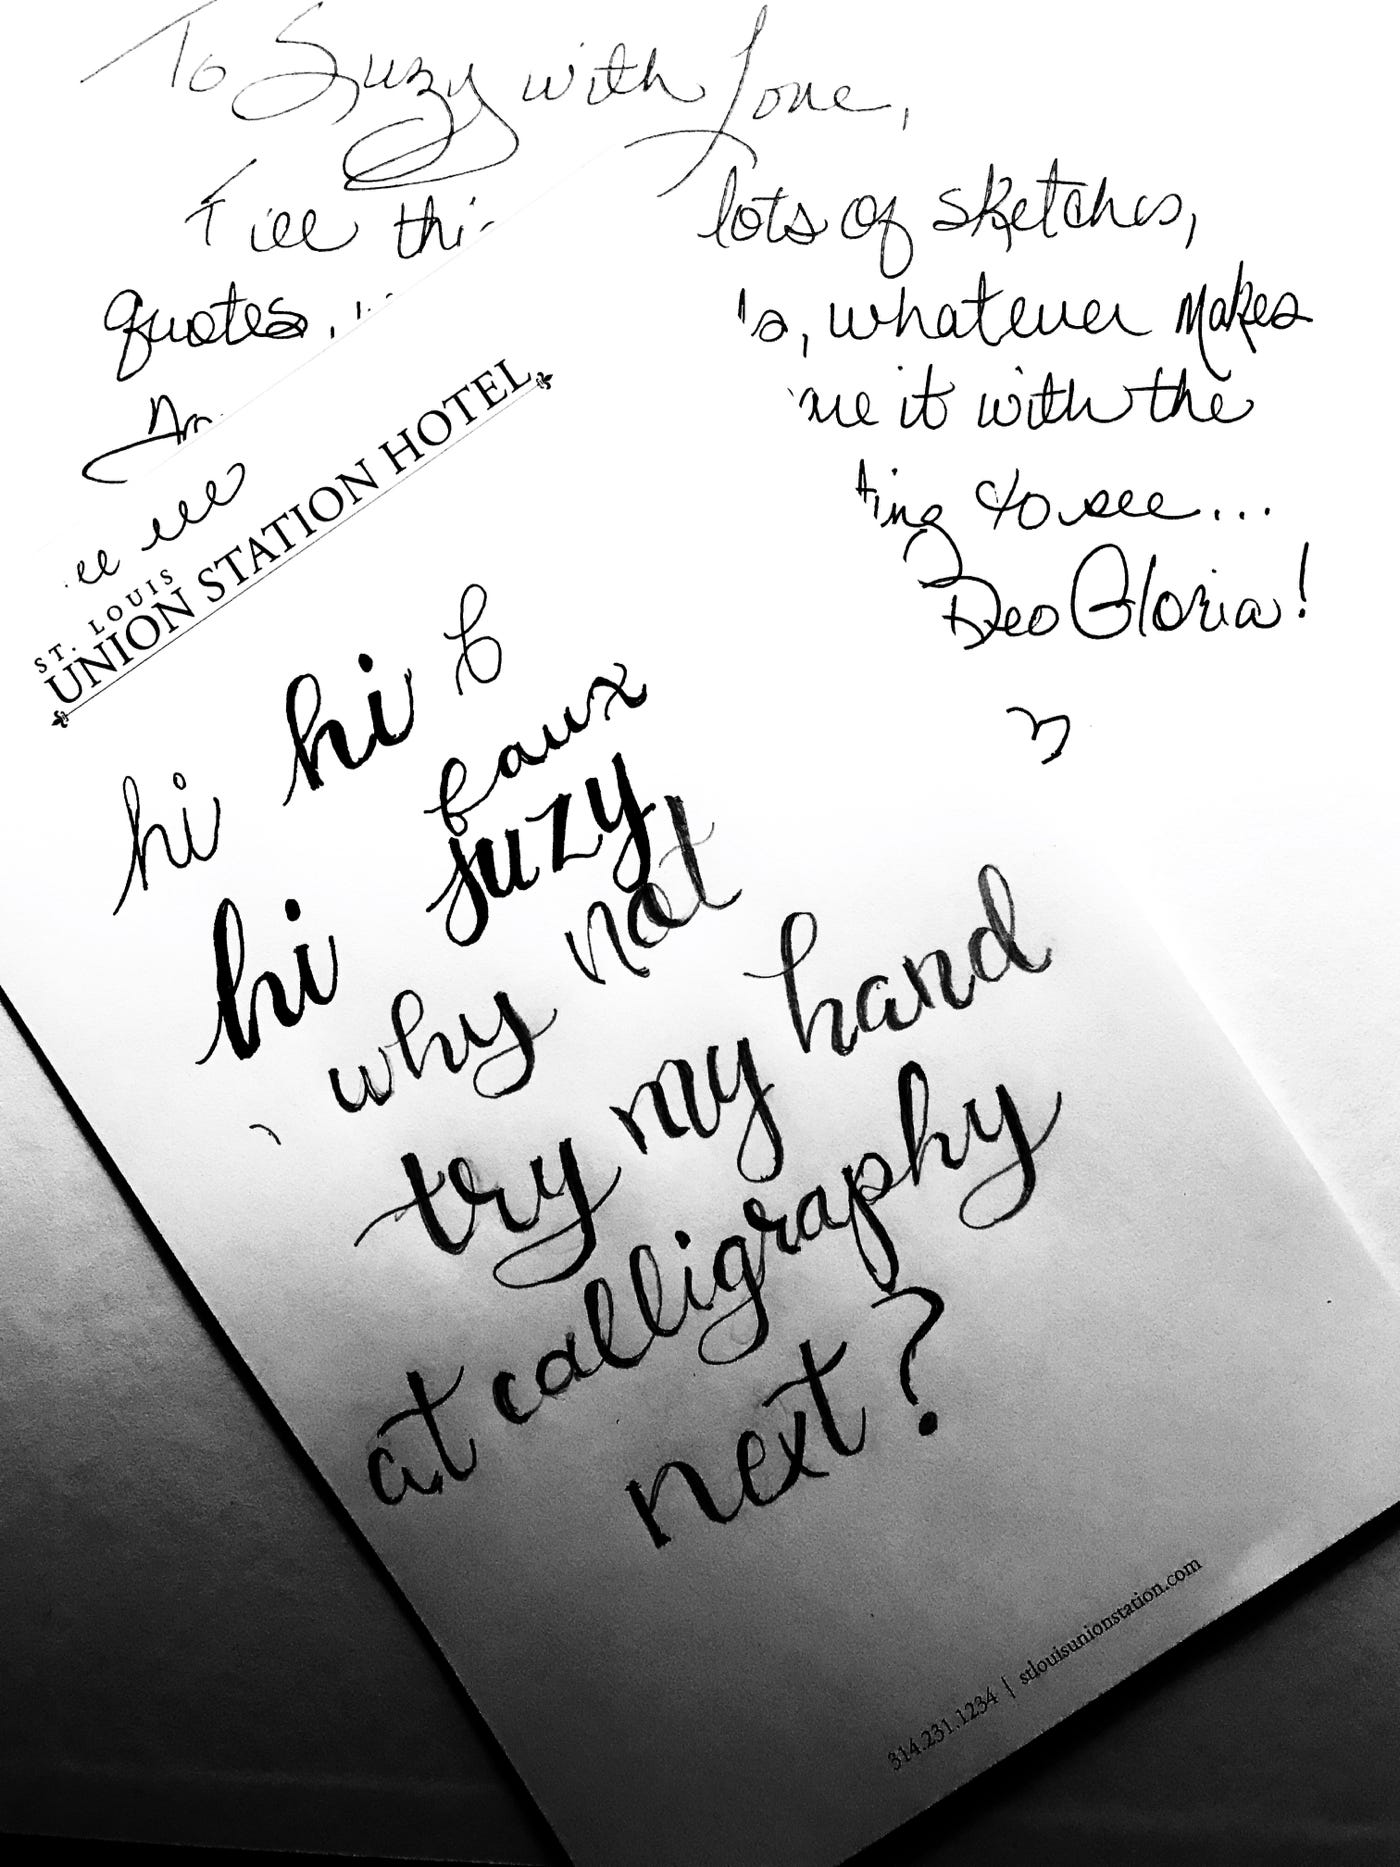 To Suzy with Love,
Fill thi lots of sketches,
quotes, 's, whatever makes
me it with the
ting to see...
Deo Gloria!
ST. LOUIS
UNION STATION HOTEL
hi hi f
faux
hi suzy
why not
try my hand
at calligraphy
next?
314.231.1234 | stlouisunionstation.com